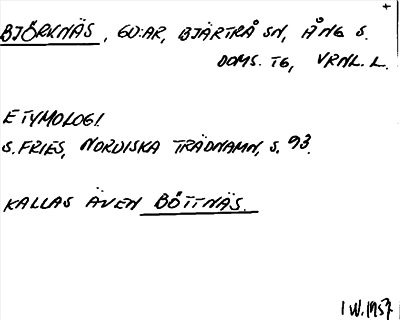 +
BJÖRKNÄS, GD:AR, BJÄRTRÅ SN, ÅNG S.
DOMS. TG, VRNL. L.
ETYMOLOGI
S. FRIES, NORDISKA TRÄDNAMN, S. 93.
KALLAS ÄVEN BÖTTNÄS.
I W. 1957